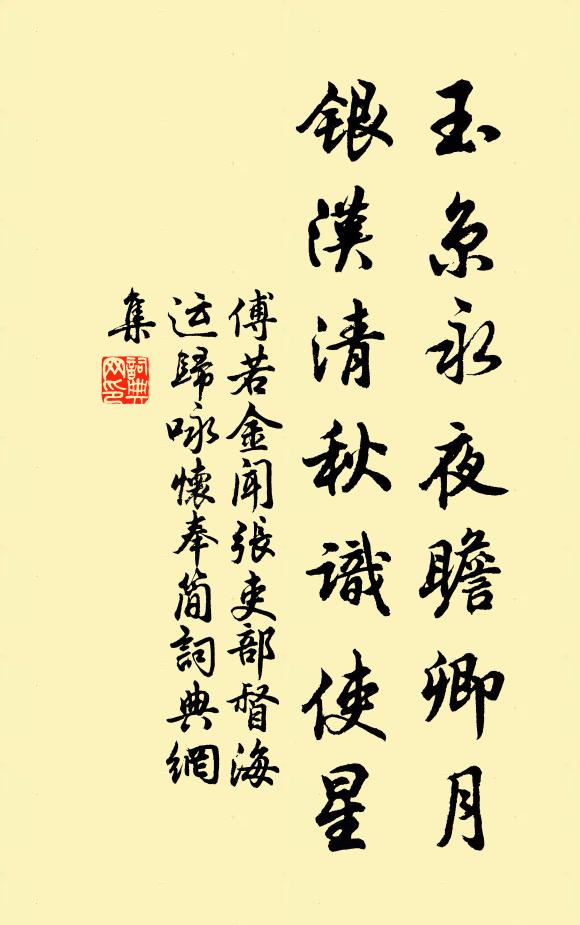 玉京永夜瞻卿月
銀漢清秋識使星
傅若金聞張吏部督海
运歸咏懷奉簡詞典網
集
詞典网印